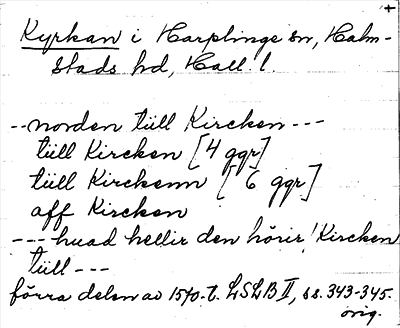 +
Kyrkan i Harplinge sn, Halm-
stads hd, Hall l.
-- norden tüll Kircken ---
tüll Kircken [4 ggr]
tüll Kirckenn [6 ggr]
aff Kircken
--- huad hellir den hörir! Kircken
tüll ---
förra delen av 1570-t. LSLB II, ss. 343-345.
orig.